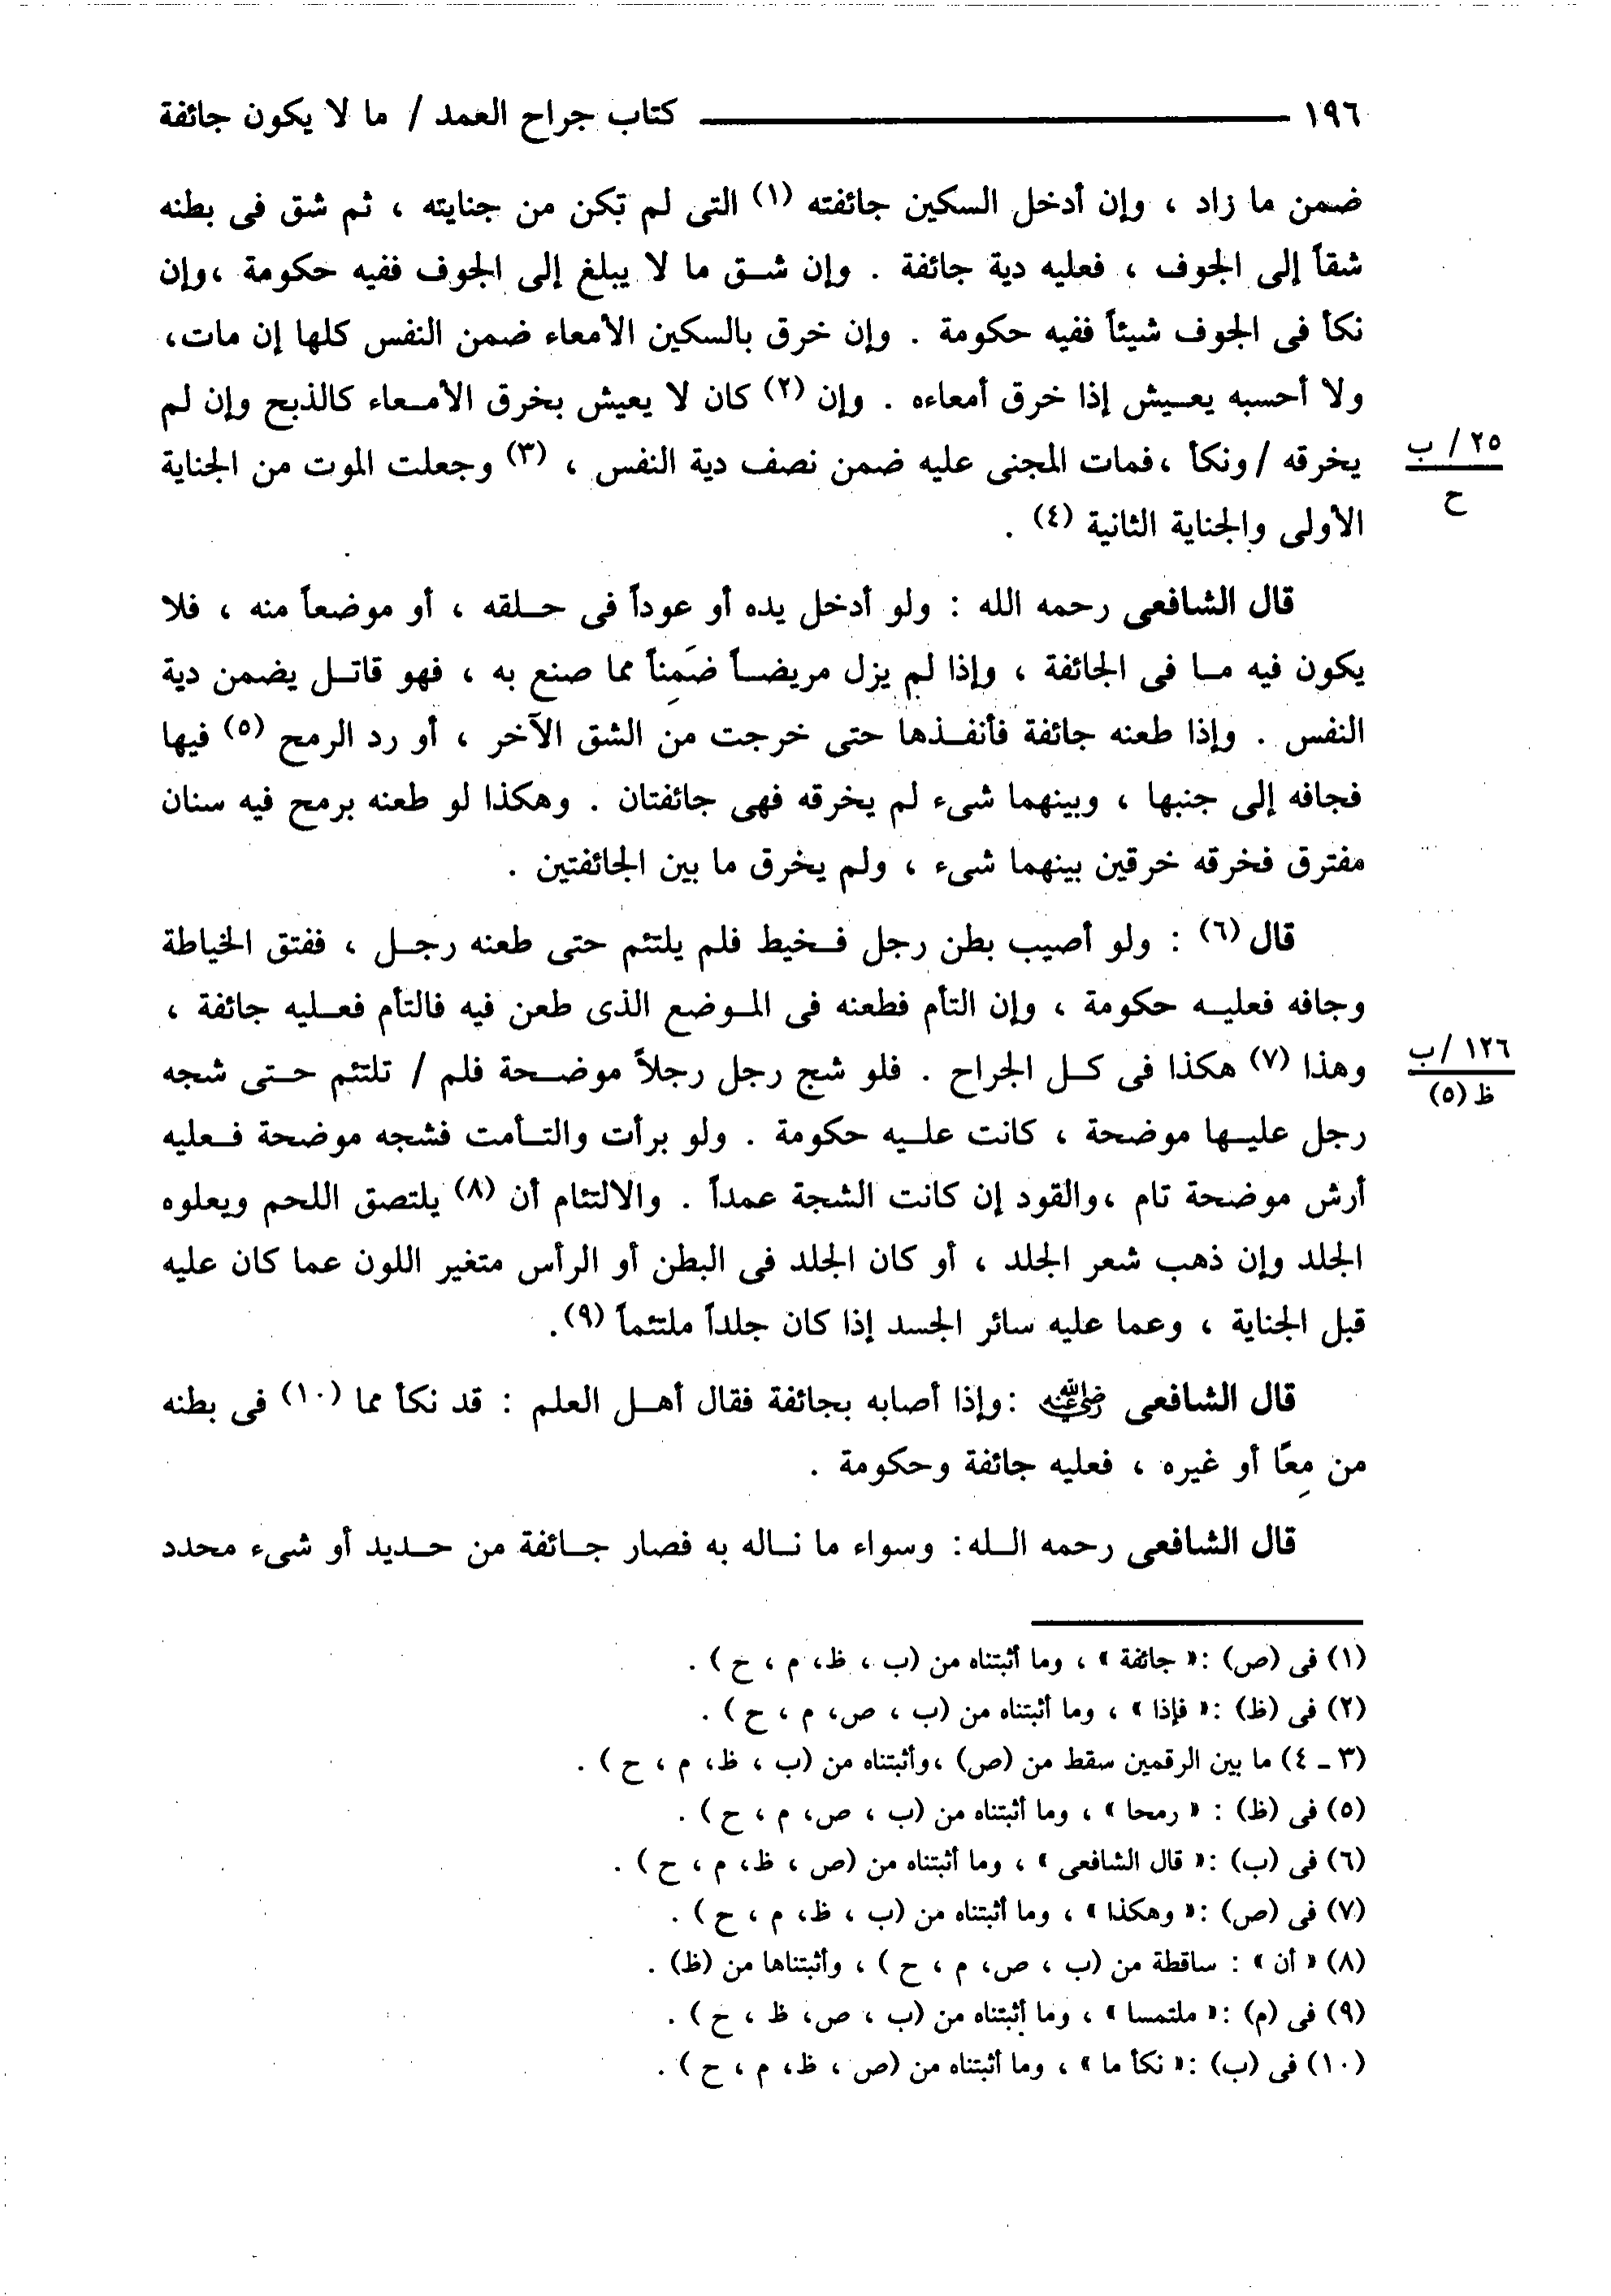 ١٩٦ ــــــ كتاب جراح العمد / ما لا يكون جائفة
ضمن ما زاد ، وإن أدخل السكين جائفته (١) التى لم تكن من جنايته ، ثم شق فى بطنه
شقاً إلى الجوف ، فعليه دية جائفة . وإن شـق ما لا يبلغ إلى الجوف ففيه حكومة ،وإن
نكأ فى الجوف شيئاً ففيه حكومة . وإن خرق بالسكين الأمعاء ضمن النفس كلها إن مات،
ولا أحسبه يعـيش إذا خرق أمعاءه . وإن (٢) كان لا يعيش بخرق الأمـعاء كالذبح وإن لم
يخرقه / ونكأ ،فمات المجنى عليه ضمن نصف دية النفس ، (٣) وجعلت الموت من الجناية
٢٥ / ب
ح
الأولى والجناية الثانية (٤) .
قال الشافعى رحمه الله : ولو أدخل يده أو عوداً فى حـلقه ، أو موضعاً منه ، فلا
يكون فيه مـا فى الجائفة ، وإذا لم يزل مريضـاً ضَمِناً مما صنع به ، فهو قاتـل يضمن دية
النفس . وإذا طعنه جائفة فأنفـذها حتى خرجت من الشق الآخر ، أو رد الرمح (٥) فيها
فجافه إلى جنبها ، وبينهما شىء لم يخرقه فهى جائفتان . وهكذا لو طعنه برمح فيه سنان
مفترق فخرقه خرقين بينهما شىء ، ولم يخرق ما بين الجائفتين .
قال (٦) : ولو أصيب بطن رجل فـخيط فلم يلتئم حتى طعنه رجـل ، ففتق الخياطة
وجافه فعليـه حكومة ، وإن التأم فطعنه فى المـوضع الذى طعن فيه فالتأم فعـليه جائفة ،
وهذا (٧) هكذا فى كـل الجراح . فلو شج رجل رجلاً موضـحة فلم / تلتئم حـتى شجه
١٢٦ / ب
ظ (٥)
رجل عليـها موضحة ، كانت علـيه حكومة . ولو برأت والتـأمت فشجه موضحة فـعليه
أرش موضحة تام ،والقود إن كانت الشجة عمداً . والالتئام أن (٨) يلتصق اللحم ويعلوه
الجلد وإن ذهب شعر الجلد ، أو كان الجلد فى البطن أو الرأس متغير اللون عما كان عليه
قبل الجناية ، وعما عليه سائر الجسد إذا كان جلداً ملتئماً (٩).
قال الشافعى رضي الله عنه :وإذا أصابه بجائفة فقال أهـل العلم : قد نكأ مما (١٠) فى بطنه
من مِعًا أو غيره ، فعليه جائفة وحكومة .
قال الشافعى رحمه الـله: وسواء ما نـاله به فصار جـائفة من حـديد أو شىء محدد
(١) فى (ص) :« جائفة » ، وما أثبتناه من (ب ، ظ، م ، ح ) .
(٢) فى (ظ) :« فإذا » ، وما أثبتناه من (ب ، ص، م ، ح ) .
(٣ ـ ٤) ما بين الرقمين سقط من (ص) ،وأثبتناه من (ب ، ظ، م ، ح ) .
(٥) فى (ظ) : « رمحا » ، وما أثبتناه من (ب ، ص، م ، ح ) .
(٦) فى (ب) :« قال الشافعى » ، وما أثبتناه من (ص ، ظ، م ، ح ) .
(٧) فى (ص) :« وهكذا » ، وما أثبتناه من (ب ، ظ، م ، ح ) .
(٨) « أن » : ساقطة من (ب ، ص، م ، ح ) ، وأثبتناها من (ظ) .
(٩) فى (م) :« ملتمسا » ، وما أثبتناه من (ب ، ص، ظ ، ح ) .
(١٠) فى (ب) :« نكأ ما » ، وما أثبتناه من (ص ، ظ، م ، ح ) .